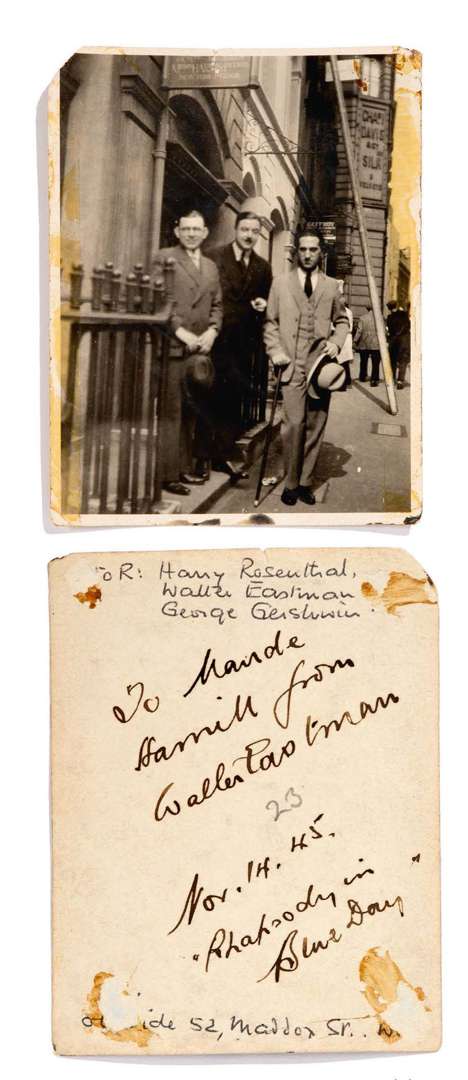 CHAS
DAVIS
SILK
to R: Harry Rosenthal,
Walter Eastman
George Gershwin
To Maude
Hamill from
Walter Eastman
23
Nov. 14. 45.
"Rhapsody in
Blue Days"
52, Maddox St.. W.